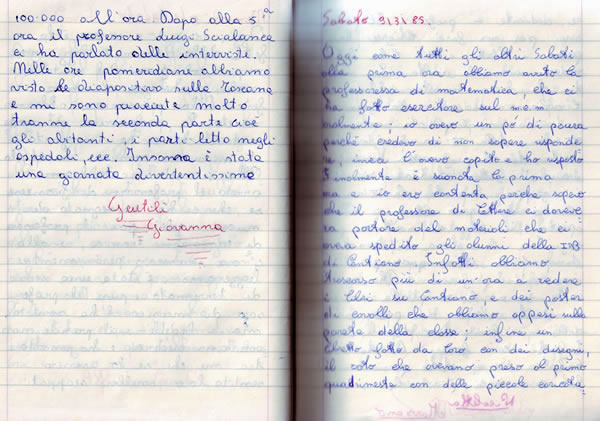 100.000 all'ora. Dopo alla 5ª
ora il professore Luigi Scialanca
ci ha parlato delle interviste.
Nelle ore pomeridiane abbiamo
visto le diapositive sulla Toscana
e mi sono piaciute molto
tranne la seconda parte cioè
gli abitanti, i posti letto negli
ospedali, ecc. Insomma è stata
una giornata divertentissima
Gentili
Giovanna
Sabato 9/3/85.
Oggi come tutti gli altri Sabati
alla prima ora abbiamo avuto la
professoressa di matematica, che ci
ha fatto esercitare sul m.c.m
; io avevo un pò di paura
perché credevo di non sapere risponde
re, invece l'avevo capito e ho risposto
Finalmente è suonata la prima
ora e io ero contenta perché sapevo
che il professore di Lettere ci doveva
portare del materiale che ci
aveva spedito gli alunni della
di Cantiano. Infatti abbiamo
trascorso più di un'ora a vedere
i libri su Cantiano, e dei poster
di cavalli che abbiamo appesi sulla
parete della classe; infine un
libretto fatto da loro con dei disegni,
il voto che avevano preso al primo
quadrimestre con delle piccole caricatu